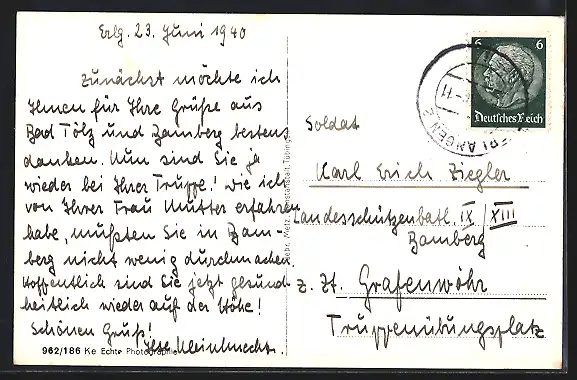 Erlg. 23. Juni 1940
Zunächst möchte ich
Ihnen für Ihre Grüße aus
Bad Tölz und Bamberg bestens
danken. Nun sind Sie ja
wieder bei Ihrer Truppe! Wie ich
von Ihrer Frau Mutter erfahren
habe, mußten Sie in Bam-
berg nicht wenig durchmachen.
Hoffentlich sind Sie jetzt gesund-
heitlich wieder auf der Höhe!
Schönen Gruß!
Ilse Kleinknecht.
962/186 Ke Echte Photographie
Gebr. Metz, Kunstanstalt, Tübingen
6 6
Deutsches Reich
ERLANGEN 2
Soldat
Karl Erich Ziegler
Landesschützenbatl. IX/XIII
Bamberg
z. Zt. Grafenwöhr
Truppenübungsplatz